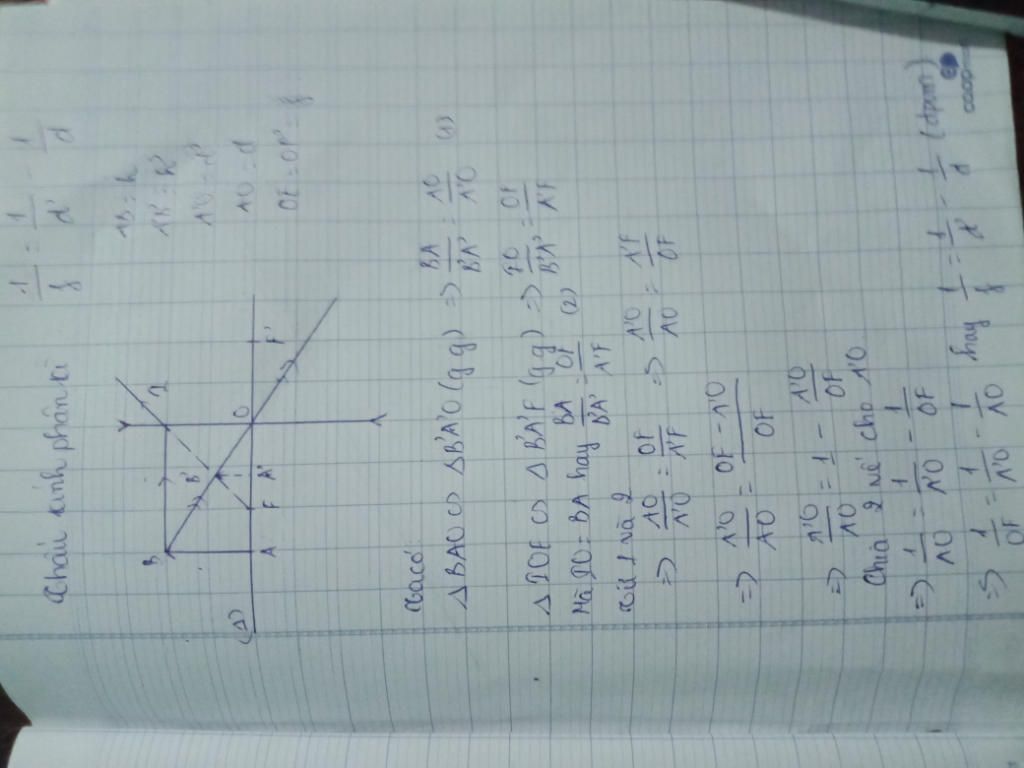 Thấu kính phân kì
1/f = 1/d' - 1/d
AB = h
A'B' = h'
A'O = d'
AO = d
OF = OF' = f
B I
B' O F'
(Δ) A F A'
Ta có:
Δ BAO ∽ Δ B'A'O (g.g) => BA/B'A' = AO/A'O (1)
Δ IOF ∽ Δ B'A'F (g.g) => IO/B'A' = OF/A'F
Mà IO = BA hay BA/B'A' = OF/A'F (2)
Từ 1 và 2
=> AO/A'O = OF/A'F => A'O/AO = A'F/OF
=> A'O/AO = OF - A'O/OF
=> A'O/AO = 1 - A'O/OF
Chia 2 vế cho A'O
=> 1/AO = 1/A'O - 1/OF
=> 1/OF = 1/A'O - 1/AO hay 1/f = 1/d' - 1/d (đpcm)